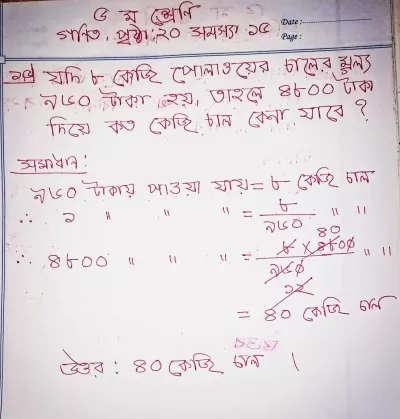 ৫ ম শ্রেণি
গণিত, পৃষ্ঠা: ২০ সমস্যা ১৫
Date :
Page :
১৫। যদি ৮ কেজি পোলাওয়ের চালের মূল্য
৯৬০ টাকা হয়, তাহলে ৪৮০০ টাকা
দিয়ে কত কেজি চাল কেনা যাবে ?
সমাধান:
৯৬০ টাকায় পাওয়া যায় = ৮ কেজি চাল
∴ ১ " " " = ৮ " "
৯৬০
৪০
∴ ৪৮০০ " " " = ৮ × ৪৮০০ " "
৯৬০
১২
= ৪০ কেজি চাল
উত্তর : ৪০ কেজি চাল ।